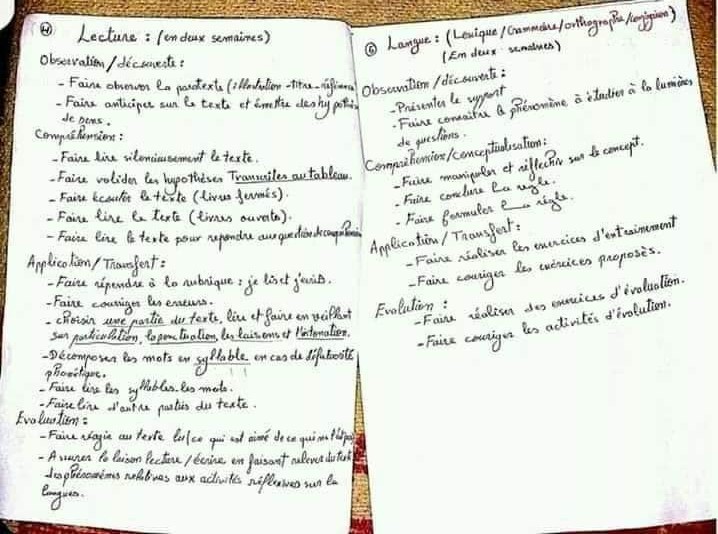 ④ Lecture : (en deux semaines)
Observation / découverte :
- Faire observer le paratexte (illustration - titre - référence
- Faire anticiper sur le texte et émettre des hypothèses
de sens.
Compréhension :
- Faire lire silencieusement le texte.
- Faire valider les hypothèses Transcrites au tableau.
- Faire écouter le texte (livres fermés).
- Faire lire le texte (livres ouverts).
- Faire lire le texte pour répondre aux questions de compréhension
Application / Transfert :
- Faire répendre à la rubrique : je lis et j'écris.
- Faire corriger les erreurs.
- choisir une partie du texte, lire et faire en veillant
sur particulation, la ponctuation, les liaisons et l'intonation.
- Décomposer les mots en syllable en cas de difficulté
phonétique.
- Faire lire les syllables les mots.
- Faire lire d'autre parties du texte.
Evaluation :
- Faire réagir au texte lu (ce qui est aimé de ce qui ne l'est pas)
- Assurer la liaison lecture / écrire en faisant relever du texte
des phénomèmes relatives aux activités réflexives sur la
langues.
⑥ Langue : (Lexique / Grammaire / orthographe / conjugaison)
(En deux semaines)
Observation / découverte :
- Présenter le support
- Faire connaître le phénomène à étudier à la lumière
de questions.
Compréhension / conceptualisation :
- Faire manipuler et réflechir sur le concept.
- Faire conclure la règle.
- Faire formuler la règle.
Application / Transfert :
- Faire réaliser les exercices d'entrainement
- Faire corriger les exercices proposés.
Evalution :
- Faire réaliser des exercices d'évaluation.
- Faire corriger les activités d'évalution.